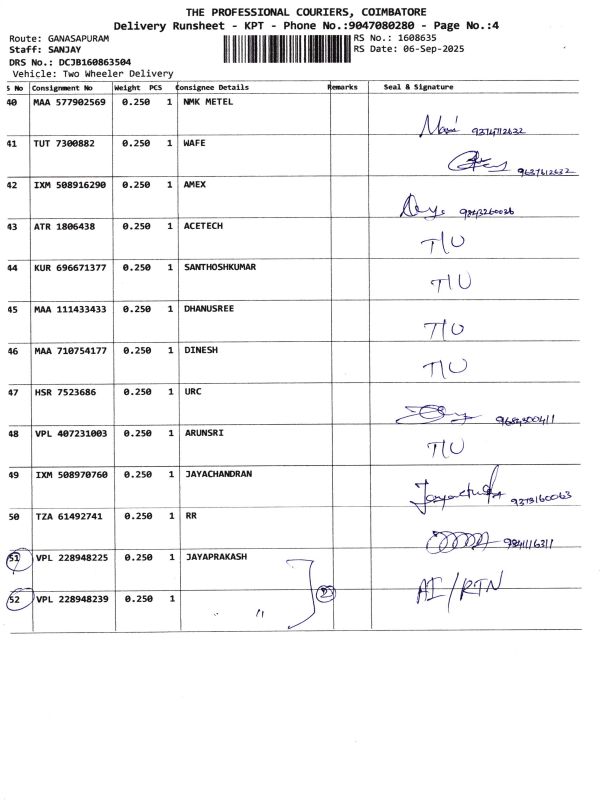 THE PROFESSIONAL COURIERS, COIMBATORE
Delivery Runsheet - KPT - Phone No.:9047080280 - Page No.:4
Route: GANASAPURAM
RS No.: 1608635
Staff: SANJAY
RS Date: 06-Sep-2025
DRS No.: DCJB160863504
Vehicle: Two Wheeler Delivery
S No Consignment No Weight PCS Consignee Details Remarks Seal & Signature
40 MAA 577902569 0.250 1 NMK METEL
41 TUT 7300882 0.250 1 WAFE
42 IXM 508916290 0.250 1 AMEX
43 ATR 1806438 0.250 1 ACETECH T/U
44 KUR 696671377 0.250 1 SANTHOSHKUMAR T/U
45 MAA 111433433 0.250 1 DHANUSREE T/U
46 MAA 710754177 0.250 1 DINESH T/U
47 HSR 7523686 0.250 1 URC
48 VPL 407231003 0.250 1 ARUNSRI T/U
49 IXM 508970760 0.250 1 JAYACHANDRAN
50 TZA 61492741 0.250 1 RR
51 VPL 228948225 0.250 1 JAYAPRAKASH
52 VPL 228948239 0.250 1 " " 2 AI/RTN